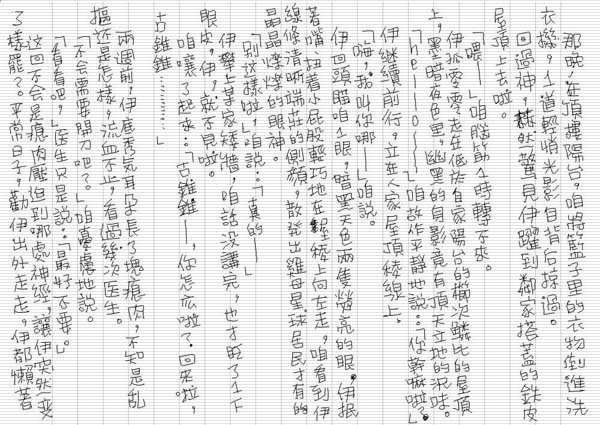 那晚,在頂樓陽台,咱將籃子里的衣物倒進洗
衣機,1道輕悄光影自背后掠過。
回過神,赫然驚見伊躍到鄰家搭蓋的鉄皮
屋頂上去啦。
「喂——」咱腦筋1時轉不來。
伊孤零零走在低於自家陽台的櫛次鱗比的屋頂
上,黑暗夜色里,幽黑的身影竟有頂天立地的況味。
「hello——」咱故作平靜地說:「你幹嘛啦?」
伊繼續前行,立在人家屋頂稜線上。
「嗨,我叫你哪——」咱說。
伊回頭瞄咱1眼,暗黑天色兩隻螢亮的眼,伊抿
著嘴,扭著小屁股輕巧地在稜上向左走,咱看到伊
線條清晰端莊的側顏,散發出雖母星球居民才有的
晶晶爍爍的眼神。
「別這樣啦,」咱說:「真的——」
伊攀上某家矮牆,咱話沒講完,也才眨了1下
眼皮,伊,就不見啦。
咱嚷了起來:「古錐錐——,你怎広啦?回來啦,
古錐錐…………」
兩週前,伊底透氣耳朵長了塊瘜肉,不知是亂
摳还是怎樣,流血不止,看過幾次医生。
「不会需要開刀吧?」咱憂慮地說。
「看看吧,」医生只是說:「最好不要。」
這回不会是瘜肉壓迫到哪處神經,讓伊突然一变
了樣罷?平常日子,勸伊出外走走,伊都懶著